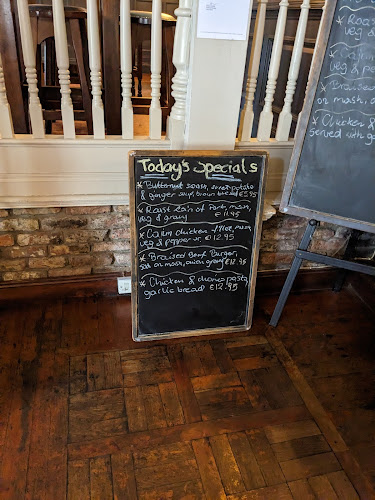 Today's Specials
* Butternut squash, sweet potato
& ginger soup, brown bread €5.95
* Roast Loin of Pork, mash,
veg & gravy €11.95
* Cajun chicken fillet, mash,
veg & pepper sr €12.95
* Braised Beef Burger,
on mash, onion gravy €12.95
* Chicken & chorizo pasta,
garlic bread €12.95
* Roast
veg &
* Cajun
veg & pepp
* Braised
on mash, o
* Chicken &
Served with ga